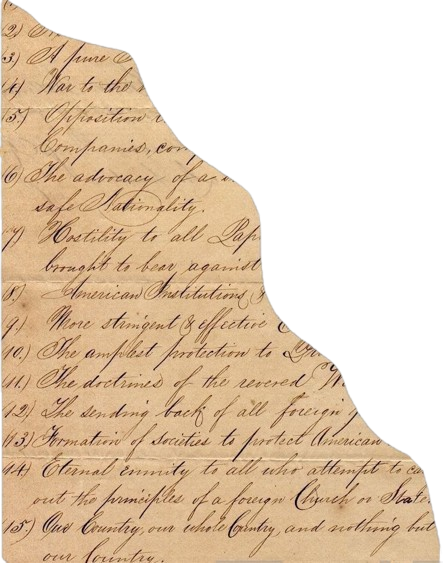 2)
3) A pure
4) War to the
5) Opposition
Companies,
6) The advocacy of a
safe Nationality.
7) Hostility to all
brought to bear against
8.) American Institutions,
9.) More stringent & effective
10.) The amplest protection to
11.) The doctrines of the revered
12.) The sending back of all foreign
13.) Formation of societies to protect American
14.) Eternal enmity to all who attempt to
out the principles of a foreign Church or State.
15.) Our Country, our whole Country, and nothing but
our Country.